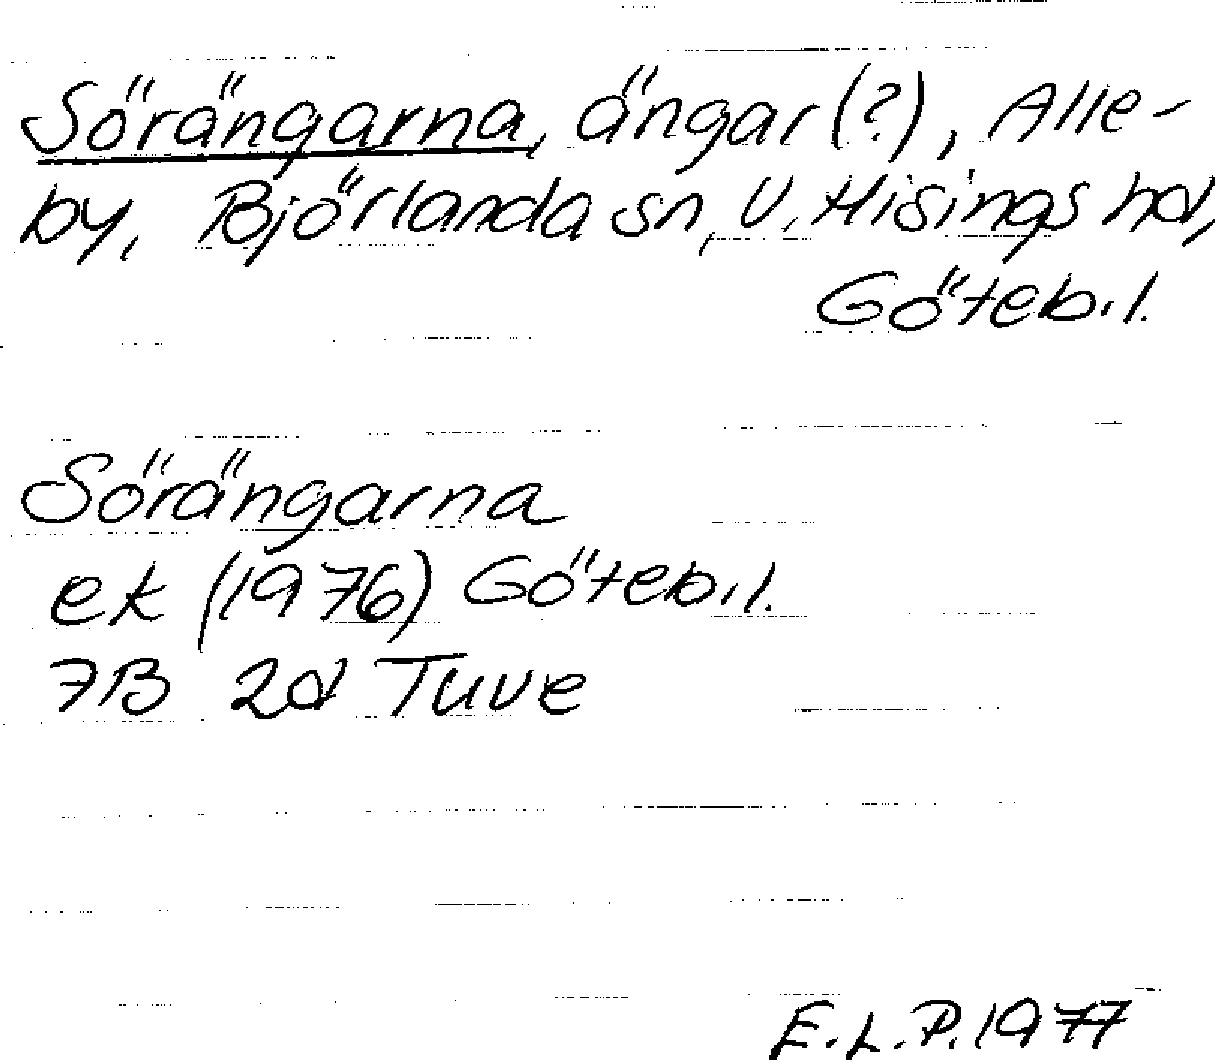 Sörängarna, ängar (?), Alle-
by, Björlanda sn, V. Hisings hd,
Göteb. l.
Sörängarna
ek (1976) Göteb. l.
7B 2d Tuve
E.L.P. 1977